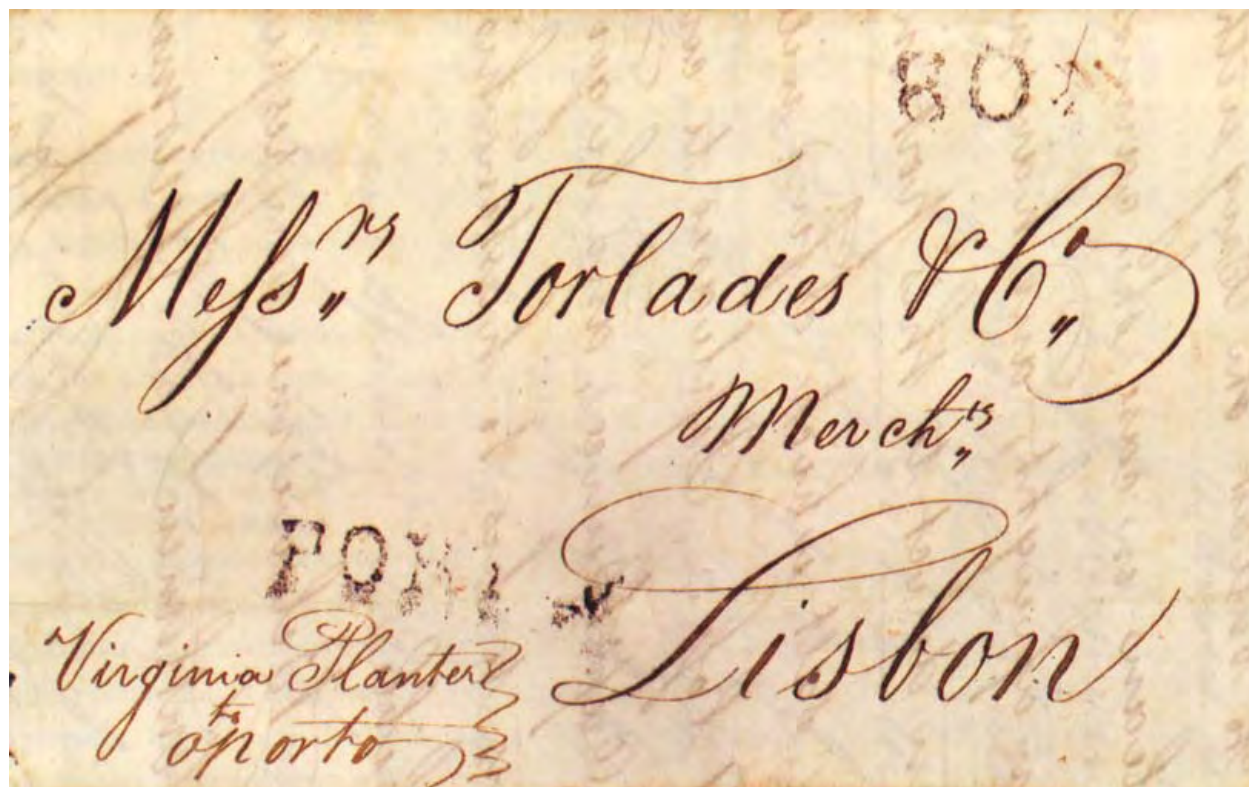 80
Messrs„ Torlades & Co„
Merchts„
Lisbon
Virginia Planter
to
oporto